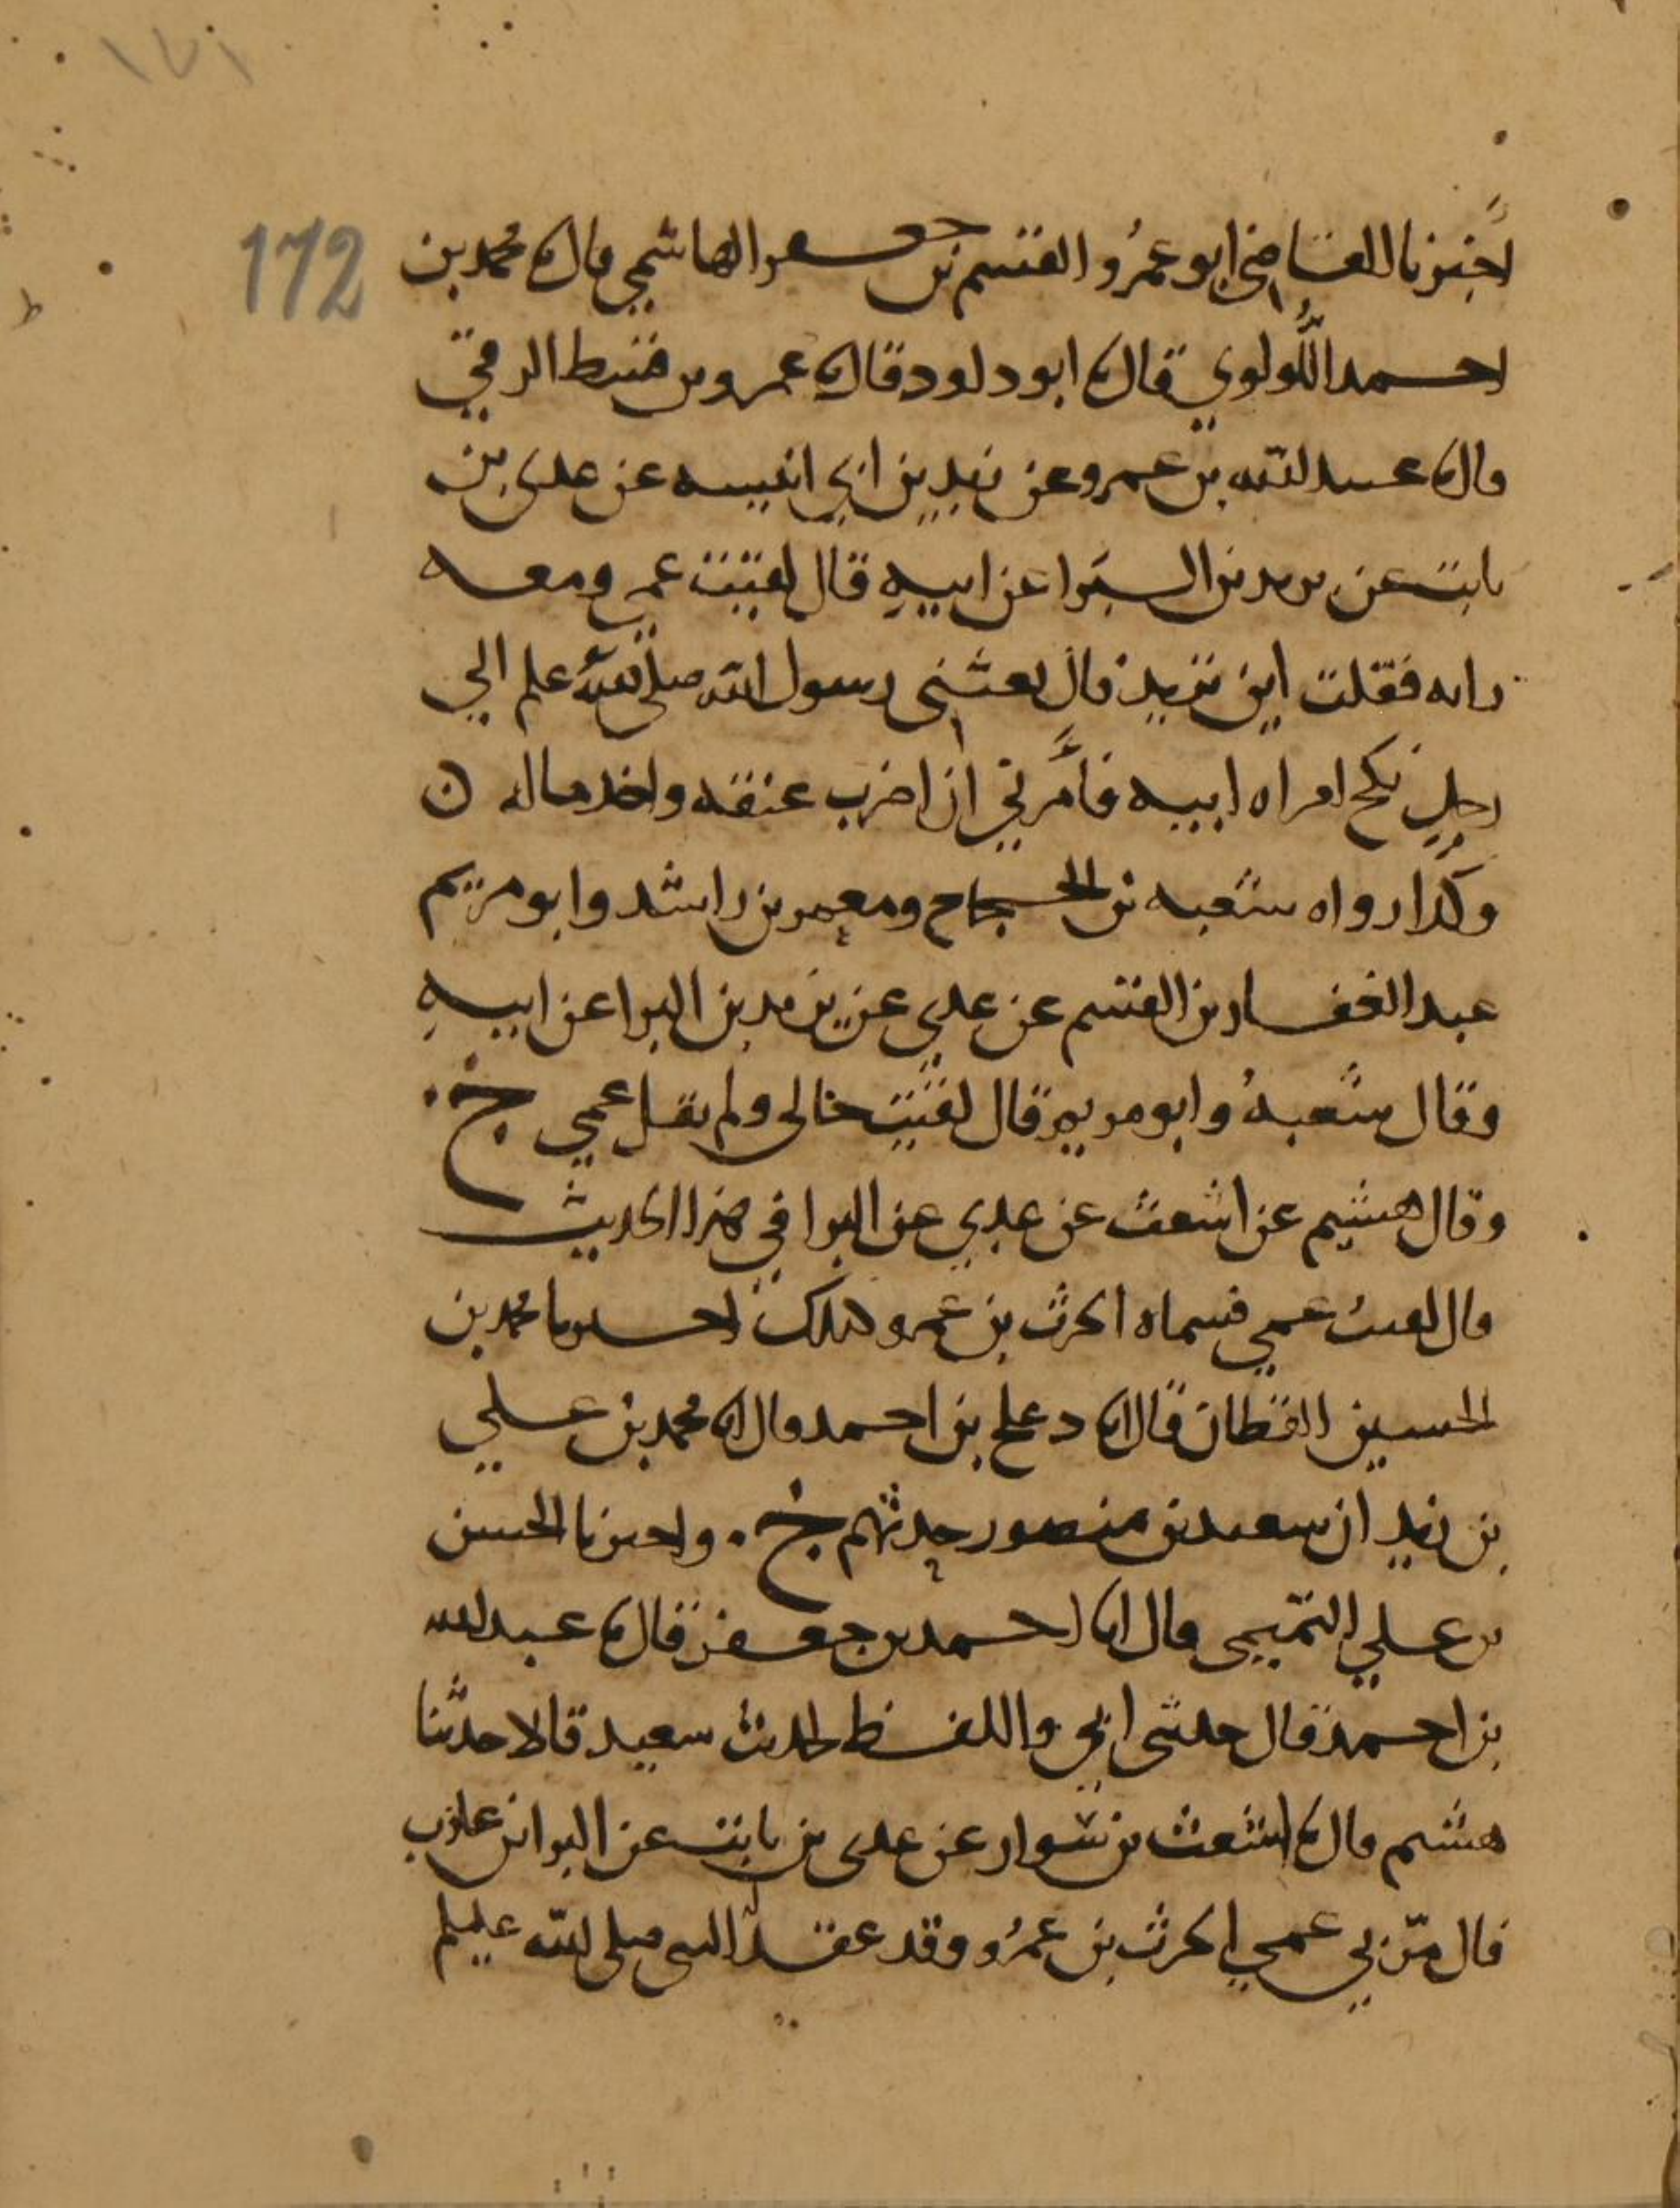 ١٧١
172
اخبرنا القاضي ابو عمرو القسم بن جعفر الهاشمي قال نا محمد بن
احمد اللولوي قال نا ابو داود قال نا عمرو بن قسط الرقي
قال نا عبيد الله بن عمرو عن زيد بن ابي انيسه عن عدي بن
ثابت عن يزيد بن البرا عن ابيه قال لقيت عمي ومعه
رايه فقلت اين تريد قال بعثني رسول الله صلى الله علم الى
رجل نكح امراه ابيه فامرني ان اضرب عنقه واخذ ماله ن
وكذا رواه شعبه بن الحجاج ومعمر بن راشد وابو مريم
عبد الغفار بن القسم عن عدي عن يزيد بن البرا عن ابيه
وقال شعبه وابو مريم قال لقيت خالي ولم يقل عمي ح
وقال هشيم عن اشعث عن عدي عن البرا في هذا الحديث
قال لقيت عمي فسماه الحرث بن عمرو كذلك اخبرنا محمد بن
الحسين القطان قال انا دعلج بن احمد قال انا محمد بن علي
بن زيد ان سعيد بن منصور حدثهم ح . واخبرنا الحسن
بن علي التميمي قال انا احمد بن جعفر قال نا عبد الله
بن احمد قال حدثني ابي واللفظ لحديث سعيد قالا حدثنا
هشيم قال نا اشعث بن سوار عن عدي بن ثابت عن البرا بن عازب
قال مر بي عمي الحرث بن عمرو وقد عقد له النبي صلى الله عليلم